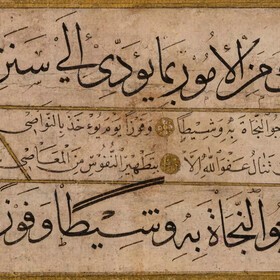 من الأمور بما يؤدي إلى سنن
النجاة به وشيطا وفوزا يوم يؤخذ بالنواصي
تنال عفو الله إلا بتطهير النفوس من المعاصي
النجاة به وشيطا وفوز